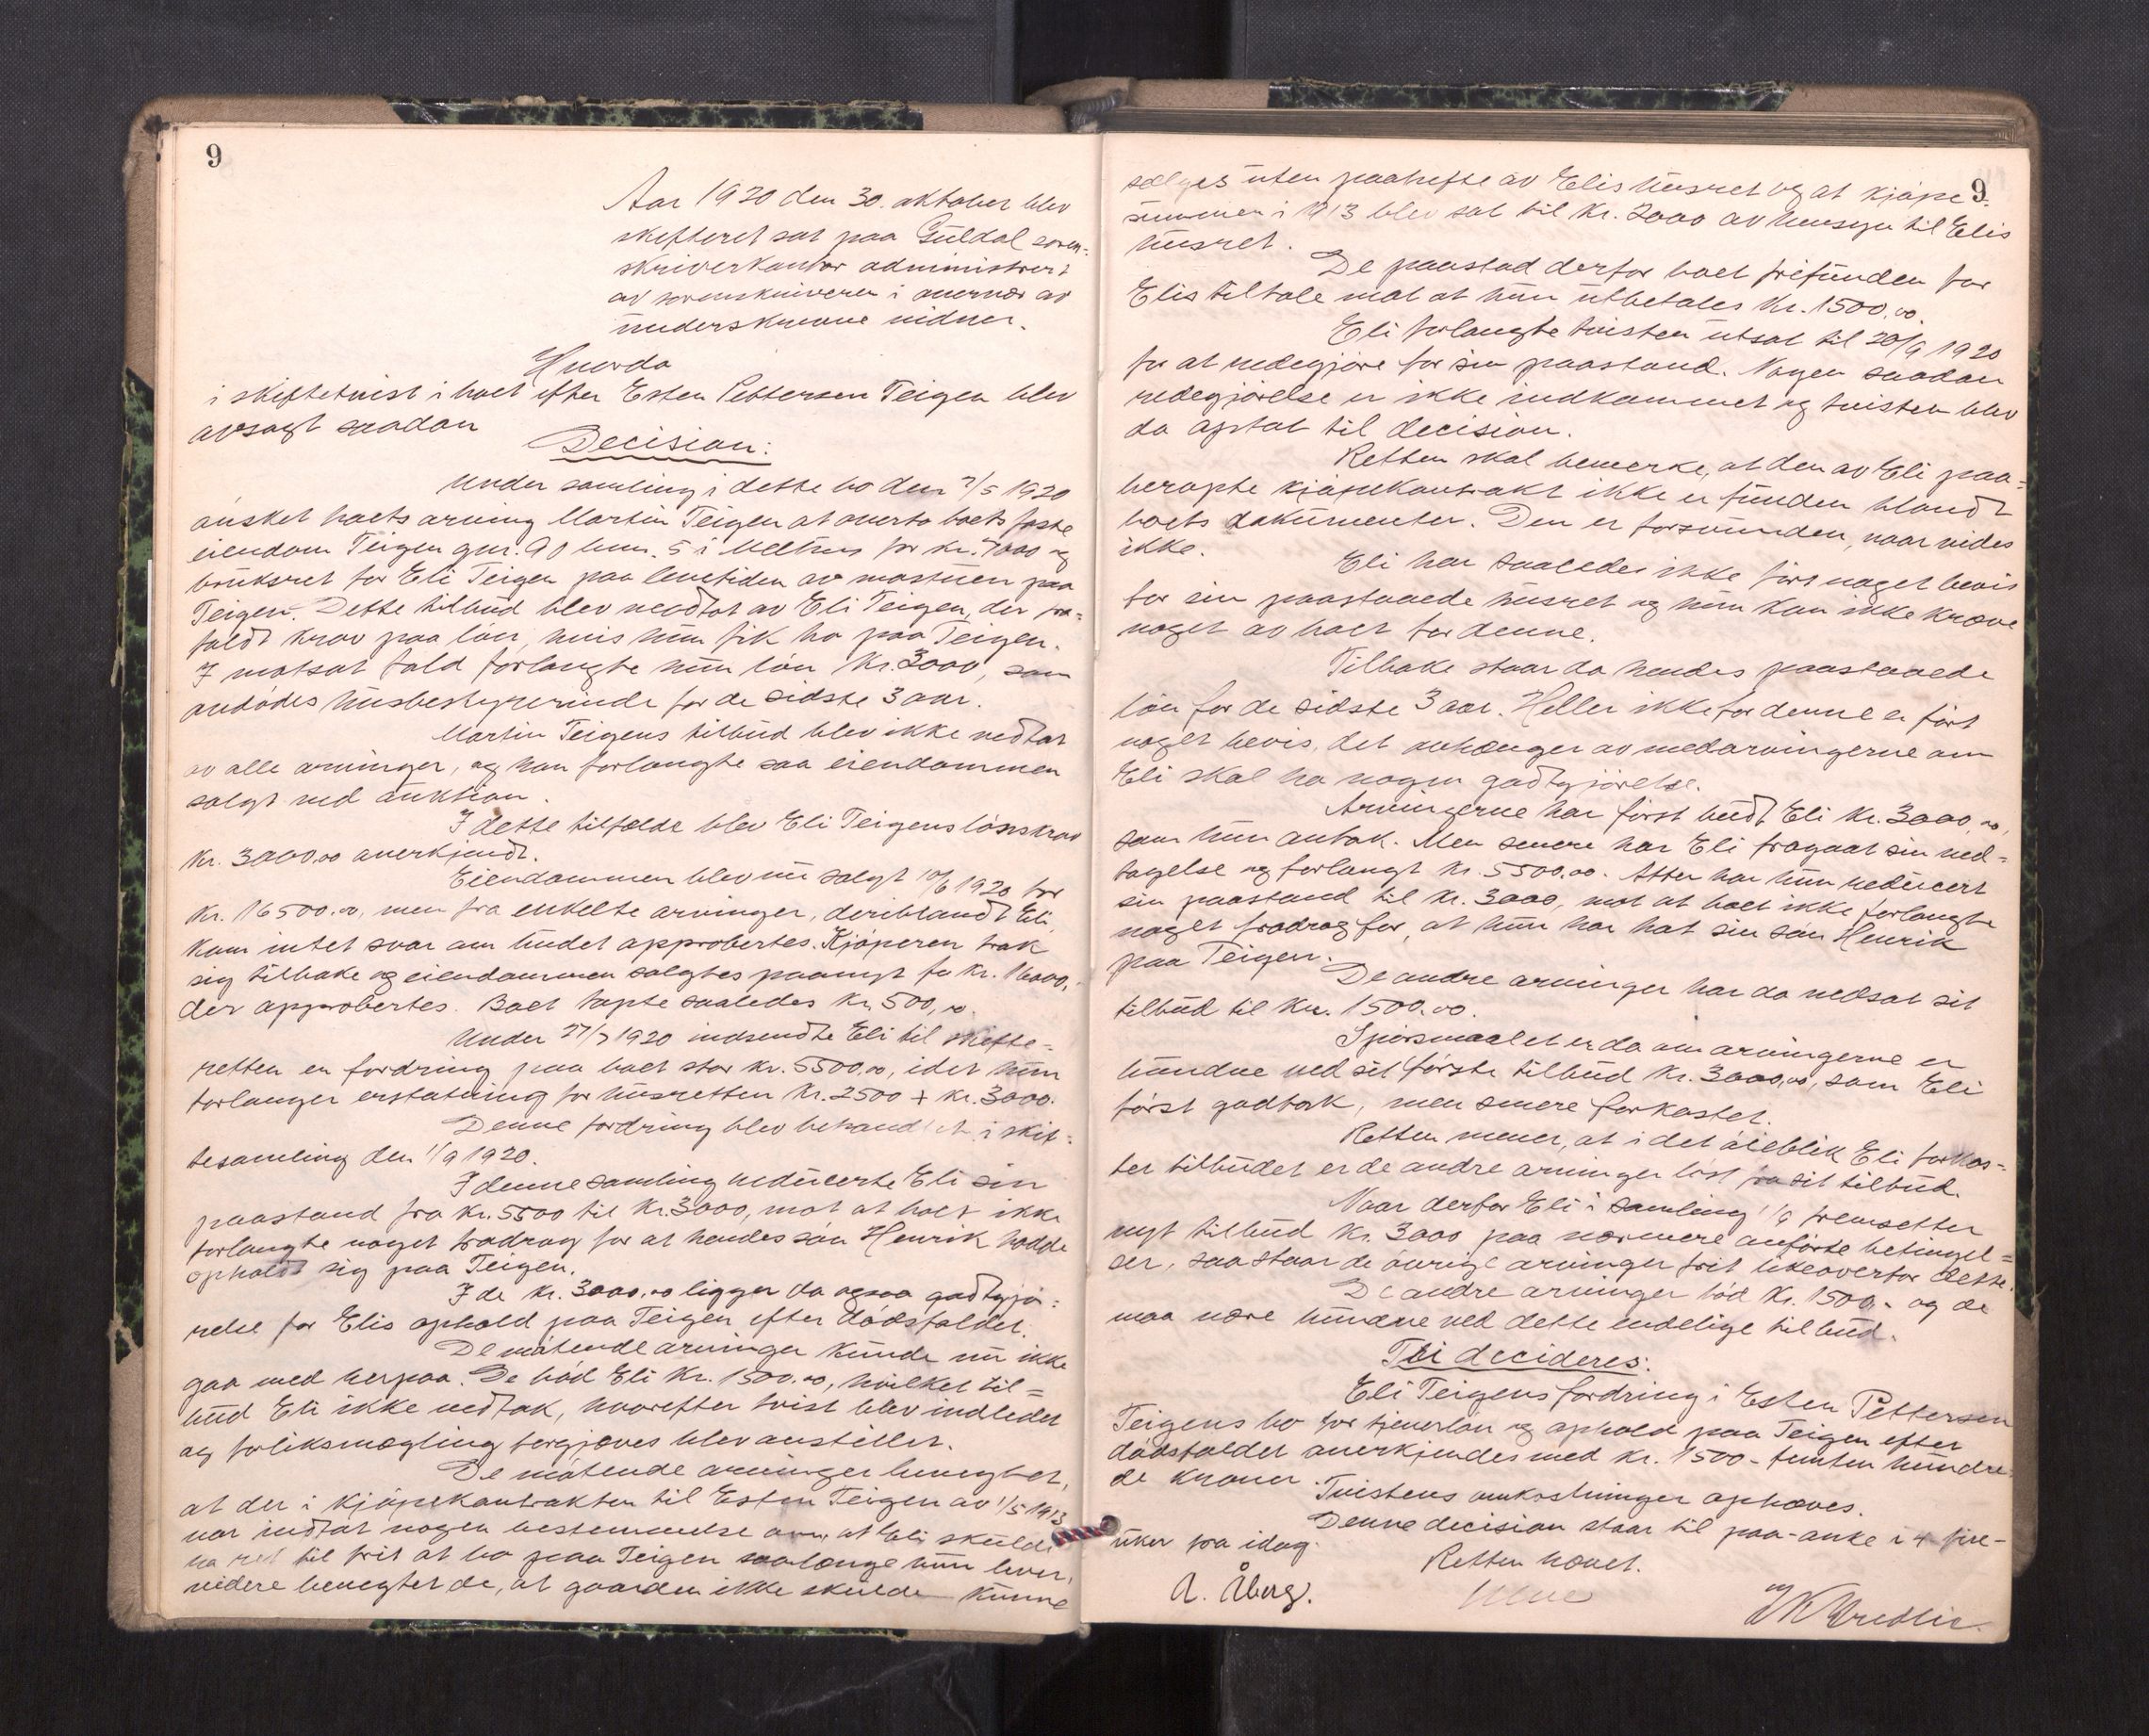 9
Aar 1920 den 30. oktober blev
skifteret sat paa Guldal soren-
skriverkontor administrert
av sorenskriveren i nærvær av
underskrevne vidner.
Hvorda
i skiftetvist i boet efter Esten Pettersen Teigen blev
avsagt saadan
Decision:
Under samling i dette bo den 7/5 1920
ønsket boets arving Martin Teigen at overta boets faste
eiendom Teigen gnr. 90 bnr. 5 i Melhus for kr. 7000 og
bruksret for Eli Teigen paa levetiden av mastuen paa
Teigen. Dette tilbud blev vedtat av Eli Teigen, der fra-
faldt krav paa løn, hvis hun fik bo paa Teigen.
I motsat fald forlangte hun løn kr. 3000, som
avdødes husbestyrerinde for de sidste 3 aar.
Martin Teigens tilbud blev ikke vedtat
av alle arvinger, og han forlangte saa eiendommen
solgt ved auktion.
I dette tilfælde blev Eli Teigens lønskrav
kr. 3000.00 anerkjendt.
Eiendommen blev nu solgt 10/6 1920 for
kr. 16500.00, men fra enkelte arvinger, deriblandt Eli,
kom intet svar om budet approbertes. Kjøperen trak
sig tilbake og eiendommen solgtes paanyt for kr. 16000,-
der approbertes. Boet tapte saaledes kr. 500,00.
Under 27/7 1920 indsendte Eli til skifte-
retten en fordring paa boet stor kr. 5500.00, idet hun
forlanger erstatning for husretten kr. 2500 + kr. 3000.
Denne fordring blev behandlet i skif-
tesamling den 1/9 1920.
I denne samling reducerte Eli sin
paastand fra kr. 5500 til kr. 3000, mot at boet ikke
forlangte noget fradrag for at hendes søn Henrik hadde
opholdt sig paa Teigen.
I de kr. 3000.00 ligger da ogsaa godtgjø-
relse for Elis ophold paa Teigen efter dødsfaldet.
De møtende arvinger kunde nu ikke
gaa med herpaa. De bød Eli kr. 1500.00, hvilket til-
bud Eli ikke vedtok, hvorefter tvist blev indledet
og forliksmægling forgjæves blev anstillet.
De møtende arvinger benegtet,
at der i kjøpekontrakten til Esten Teigen av 1/5 1913
var indtat nogen bestemmelse om, at Eli skulde
ha ret til frit at bo paa Teigen saalænge hun lever,
videre benegtet de, at gaarden ikke skulde kunne
9
sælges uten paahefte av Elis husret og at kjøpe-
summen i 1913 blev sat til kr. 2000 av hensyn til Elis
husret.
De paastod derfor boet frifunden for
Elis tiltale mot at hun utbetales kr. 1500.00.
Eli forlangte tvisten utsat til 20/9 1920
for at redegjøre for sin paastand. Nogen saadan
redegjørelse er ikke indkommet og tvisten blev
da optat til decision.
Retten skal bemerke, at den av Eli paa-
beropte kjøpekontrakt ikke er funden blandt
boets dokumenter. Den er forsvunden, naar vides
ikke.
Eli har saaledes ikke ført noget bevis
for sin paastaaede husret og hun kan ikke kræve
noget av boet for denne.
Tilbake staar da hendes paastaaede
løn for de sidste 3 aar. Heller ikke for denne er ført
noget bevis, det avhænger av medarvingerne om
Eli skal ha nogen godtgjørelse.
Arvingerne har først budt Eli kr. 3000,00,
som hun antok. Men senere har Eli fragaat sin ved-
tagelse og forlangt kr. 5500.00. Atter har hun reducert
sin paastand til kr. 3000, mot at boet ikke forlangte
noget fradrag for, at hun har hat sin søn Henrik
paa Teigen.
De andre arvinger har da nedsat sit
tilbud til kr. 1500.00.
Spørsmaalet er da om arvingerne er
bundne ved sit første tilbud kr. 3000,00, som Eli
først godtok, men senere forkastet.
Retten mener, at i det øieblik Eli forkas-
ter tilbudet er de andre arvinger løst fra sit tilbud.
Naar derfor Eli i samling 1/9 fremsetter
nyt tilbud kr. 3000 paa nærmere anførte betingel-
ser, saa staar de øvrige arvinger frit likeoverfor dette.
De andre arvinger bød kr. 1500,- og de
maa være bundne ved dette endelige tilbud.
Thi decideres:
Eli Teigens fordring i Esten Pettersen
Teigens bo for tjenerløn og ophold paa Teigen efter
dødsfaldet anerkjendes med kr. 1500 - femten hundre-
de kroner. Tvistens omkostninger ophæves.
Denne decision staar til paa-anke i 4 fire-
uker fra idag.
Retten hævet.
A. Åberg.